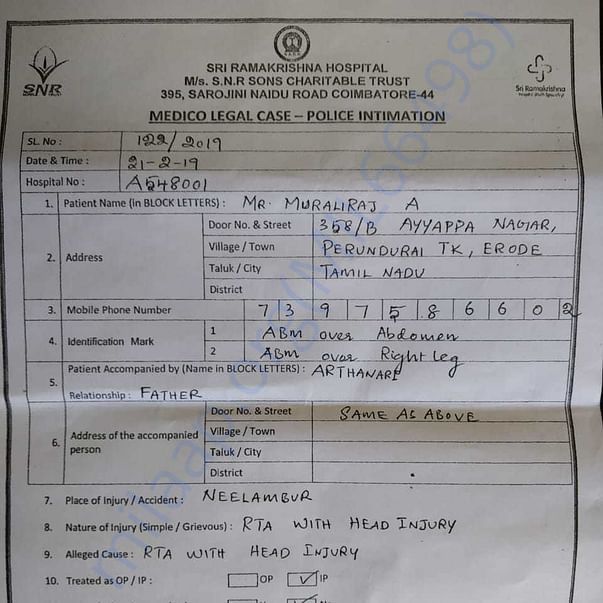 SNR
Sri Ramakrishna
SRI RAMAKRISHNA HOSPITAL
M/s. S.N.R SONS CHARITABLE TRUST
395, SAROJINI NAIDU ROAD COIMBATORE-44
MEDICO LEGAL CASE – POLICE INTIMATION
SL. No : 122/2019
Date & Time : 21-2-19
Hospital No : A548001
1. Patient Name (in BLOCK LETTERS) : MR. MURALIRAJ A
2. Address
Door No. & Street 358/B AYYAPPA NAGAR,
Village / Town PERUNDURAI TK, ERODE
Taluk / City TAMIL NADU
District
3. Mobile Phone Number 7 3 9 7 5 8 6 6 0 2
4. Identification Mark
1 ABM over Abdomen
2 ABM over Right leg
5. Patient Accompanied by (Name in BLOCK LETTERS) : ARTHANARI
Relationship : FATHER
6. Address of the accompanied person
Door No. & Street SAME AS ABOVE
Village / Town
Taluk / City
District
7. Place of Injury / Accident : NEELAMBUR
8. Nature of Injury (Simple / Grievous) : RTA WITH HEAD INJURY
9. Alleged Cause : RTA WITH HEAD INJURY
10. Treated as OP / IP : OP ✓ IP